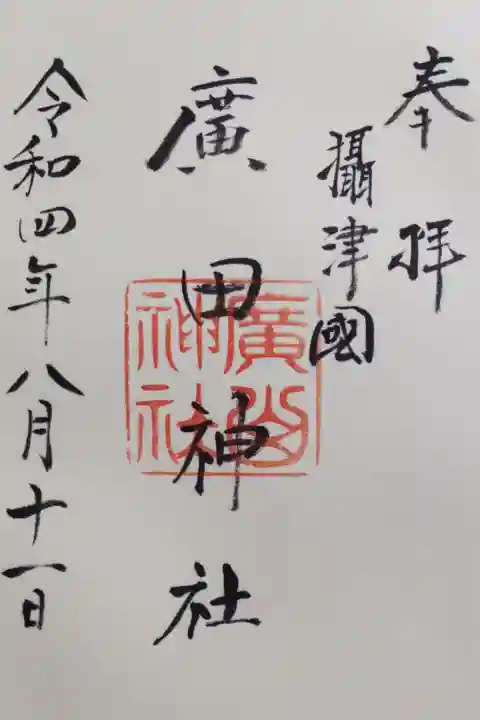 奉拝
攝津國
廣田神社
廣田神社
令和四年八月十一日